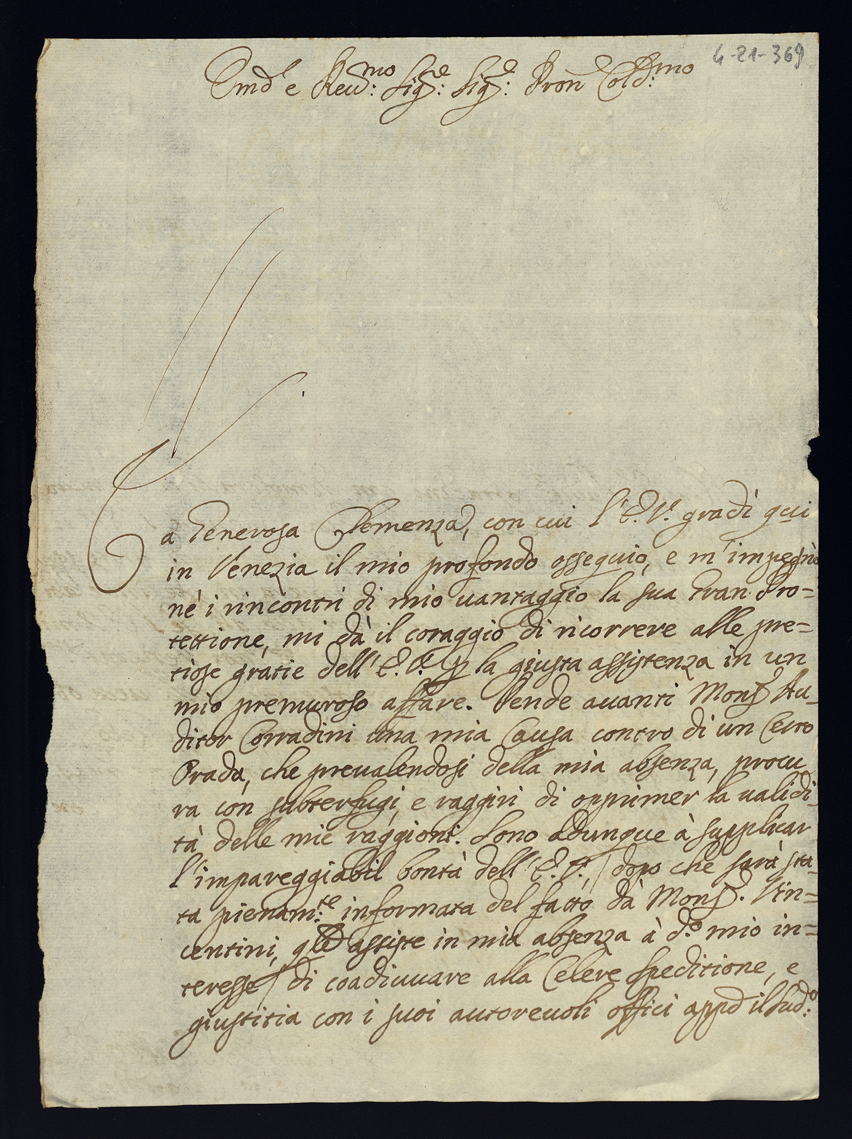 4-21-369
Em.o e Rev:mo Sig.re: Sig.re: Pron Col.mo
La Generosa Clemenza, con cui l'E.V. gradì qui
in Venezia il mio profondo ossequio, e m'impegnò
nè i rincontri di mio vantaggio la sua Gran Pro=
tettione, mi dà il coraggio di ricorrere alle pre=
tiose gratie dell'E.V. p la giusta assistenza in un
mio premuroso affare. Pende avanti Mons.r Au=
ditor Corradini una mia Causa contro di un Certo
Prada, che prevalendosi della mia absenza, procu
ra con subterfugi, e raggiri di opprimer la validi=
tà delle mie raggioni. Sono adunque à supplicar
l'impareggiabil bontà dell'E.V. / dopo che sarà sta=
ta pienam.te informata del fatto dà Mons.r Vin=
centini, assiste in mia absenza à d.o mio in=
teresse / di coadiuvare alla Celere speditione, e
giustitia con i suoi autorevoli offici app.o il sud.o: